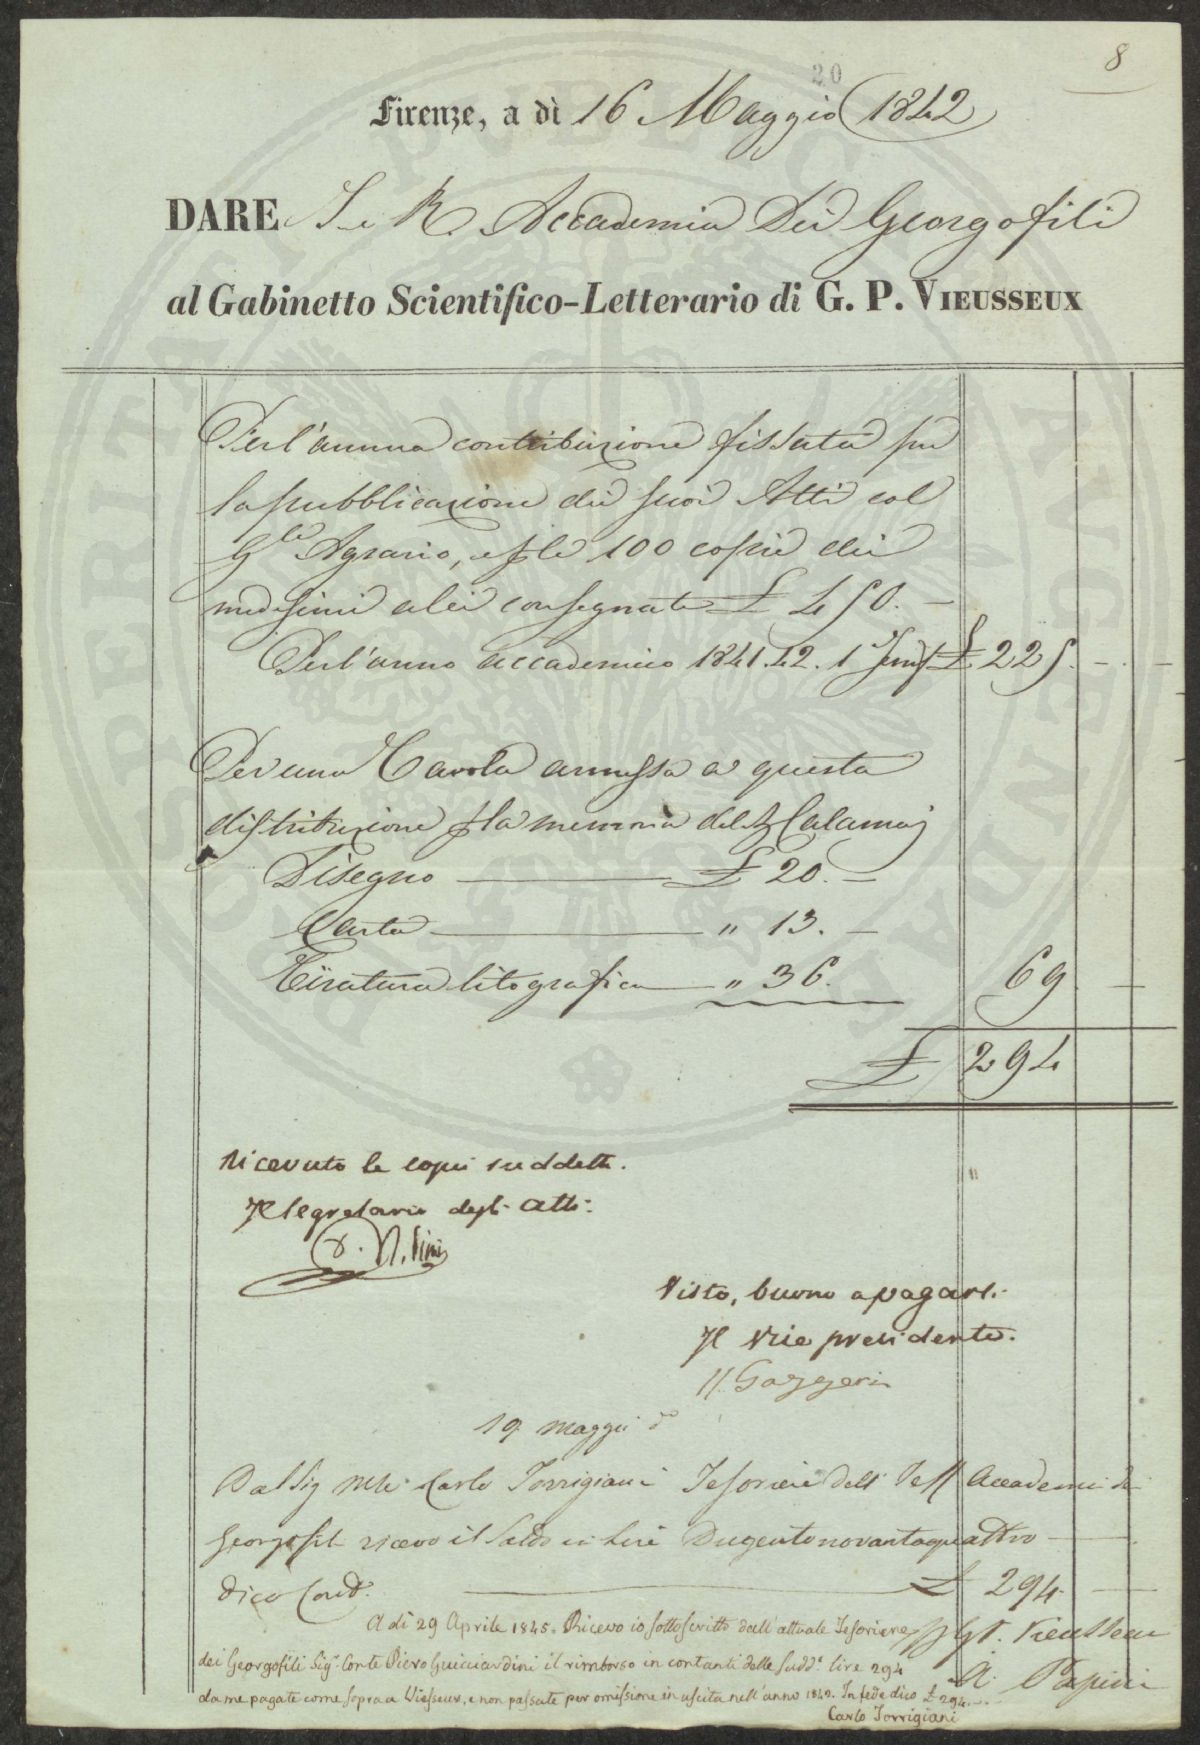 8
20
Firenze, a dì 16 Maggio 1842
DARE I. e R. Accademia dei Georgofili
al Gabinetto Scientifico-Letterario di G. P. VIEUSSEUX
Per l'annua contribuzione fissata per
la pubblicazione dei suoi Atti col
Gle Agrario, e ple 100 copie dei
medesimi a lei consegnate £ 450. —
Per l'anno accademico 1841.42. 1° Sem. £ 225. — . —
Per una Tavola annessa a questa
distribuzione pla memoria del Calamaj
Disegno — £ 20. —
Carta — " 13. —
Tiratura litografica — " 36. 69 —
£ 294
Ricevuto le copie suddette.
Il Segretario degli Atti:
Visto, buono a pagarsi.
Il Vice presidente.
Gazzeri
19 maggio do
Dal Sig Mse Carlo Torrigiani Tesoriere dell' Accademia dei
Georgofili ricevo il saldo in Lire Dugentonovantaquattro —
dico Cond. — £ 294 —
p. Vieusseux
A dì 29 Aprile 1845. Ricevo io sottoscritto dall'attuale Tesoriere
dei Georgofili Sigr. Conte Piero Guicciardini il rimborso in contanti delle sudde lire 294
A. Papini
da me pagate come sopra a Viesseux, e non passate per omissione in uscita nell'anno 1842. In fede dico £ 294. — . —
Carlo Torrigiani
PROSPERITATI PUBLICAE AUGENDAE